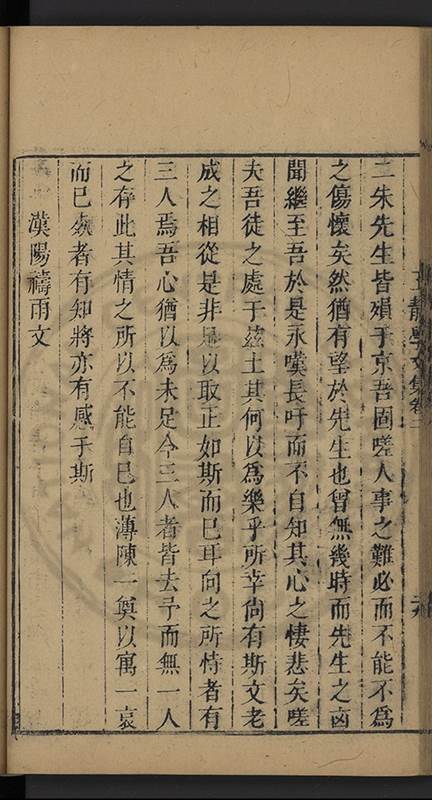 王靜學文集卷二
二朱先生皆殞于京吾固嗟人事之難必而不能不爲
之傷懷矣然猶有望於先生也曾無幾時而先生之凶
聞繼至吾於是永嘆長吁而不自知其心之悽悲矣嗟
夫吾徒之處于茲土其何以爲樂乎所幸尚有斯文老
成之相從是非足以取正如斯而巳耳向之所恃者有
三人焉吾心猶以爲未足今三人者皆去予而無一人
之存此其情之所以不能自巳也薄陳一奠以寓一哀
而巳䖏者有知將亦有感乎斯
漢陽禱雨文